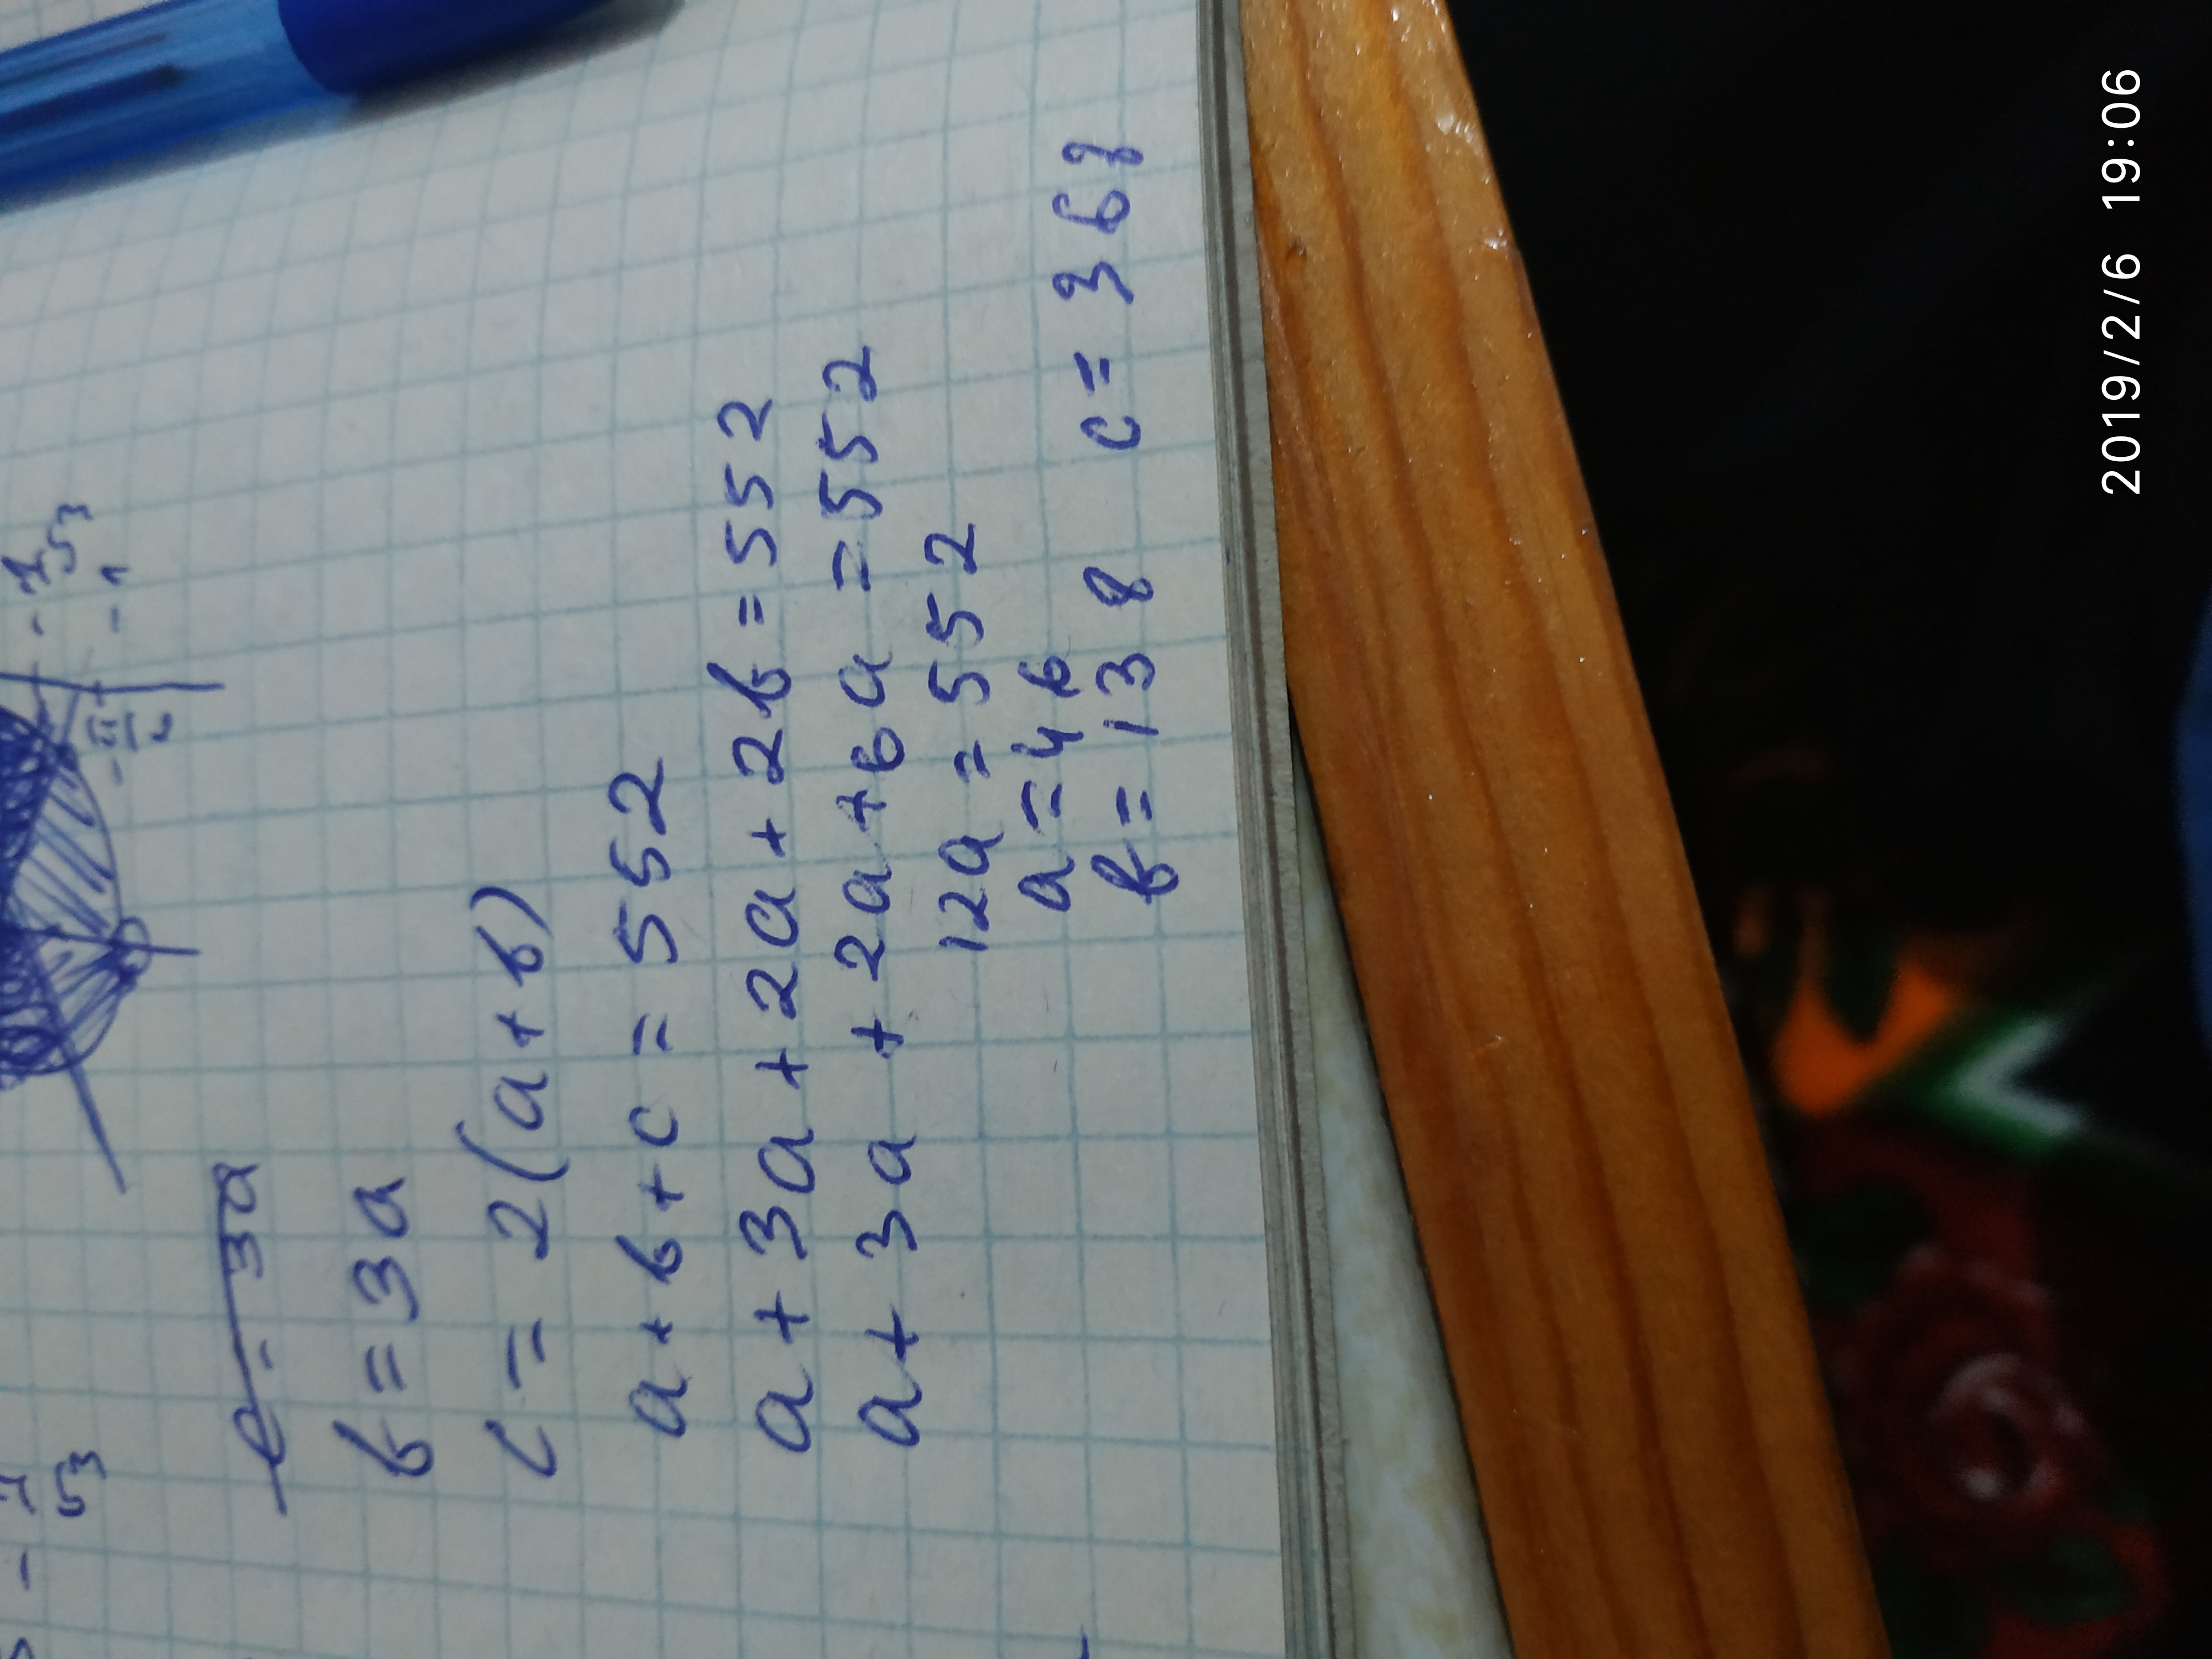 b = 3a
c = 2(a+b)
a + b + c = 552
a + 3a + 2a + 2b = 552
a + 3a + 2a + 6a = 552
12a = 552
a = 46
b = 138 c = 368
2019/2/6 19:06